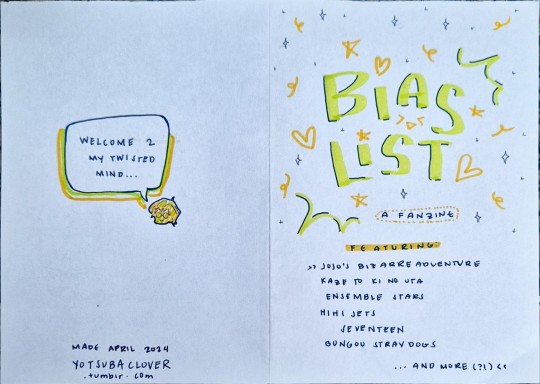 WELCOME 2
MY TWISTED
MIND...
MADE APRIL 2024
YOTSUBACLOVER
.tumblr.com
BIAS
LIST
A FANZINE
FEATURING:
>> JOJO'S BIZARRE ADVENTURE
KAZE TO KI NO UTA
ENSEMBLE STARS
HIHI JETS
SEVENTEEN
BUNGOU STRAY DOGS
... AND MORE (?!) <<